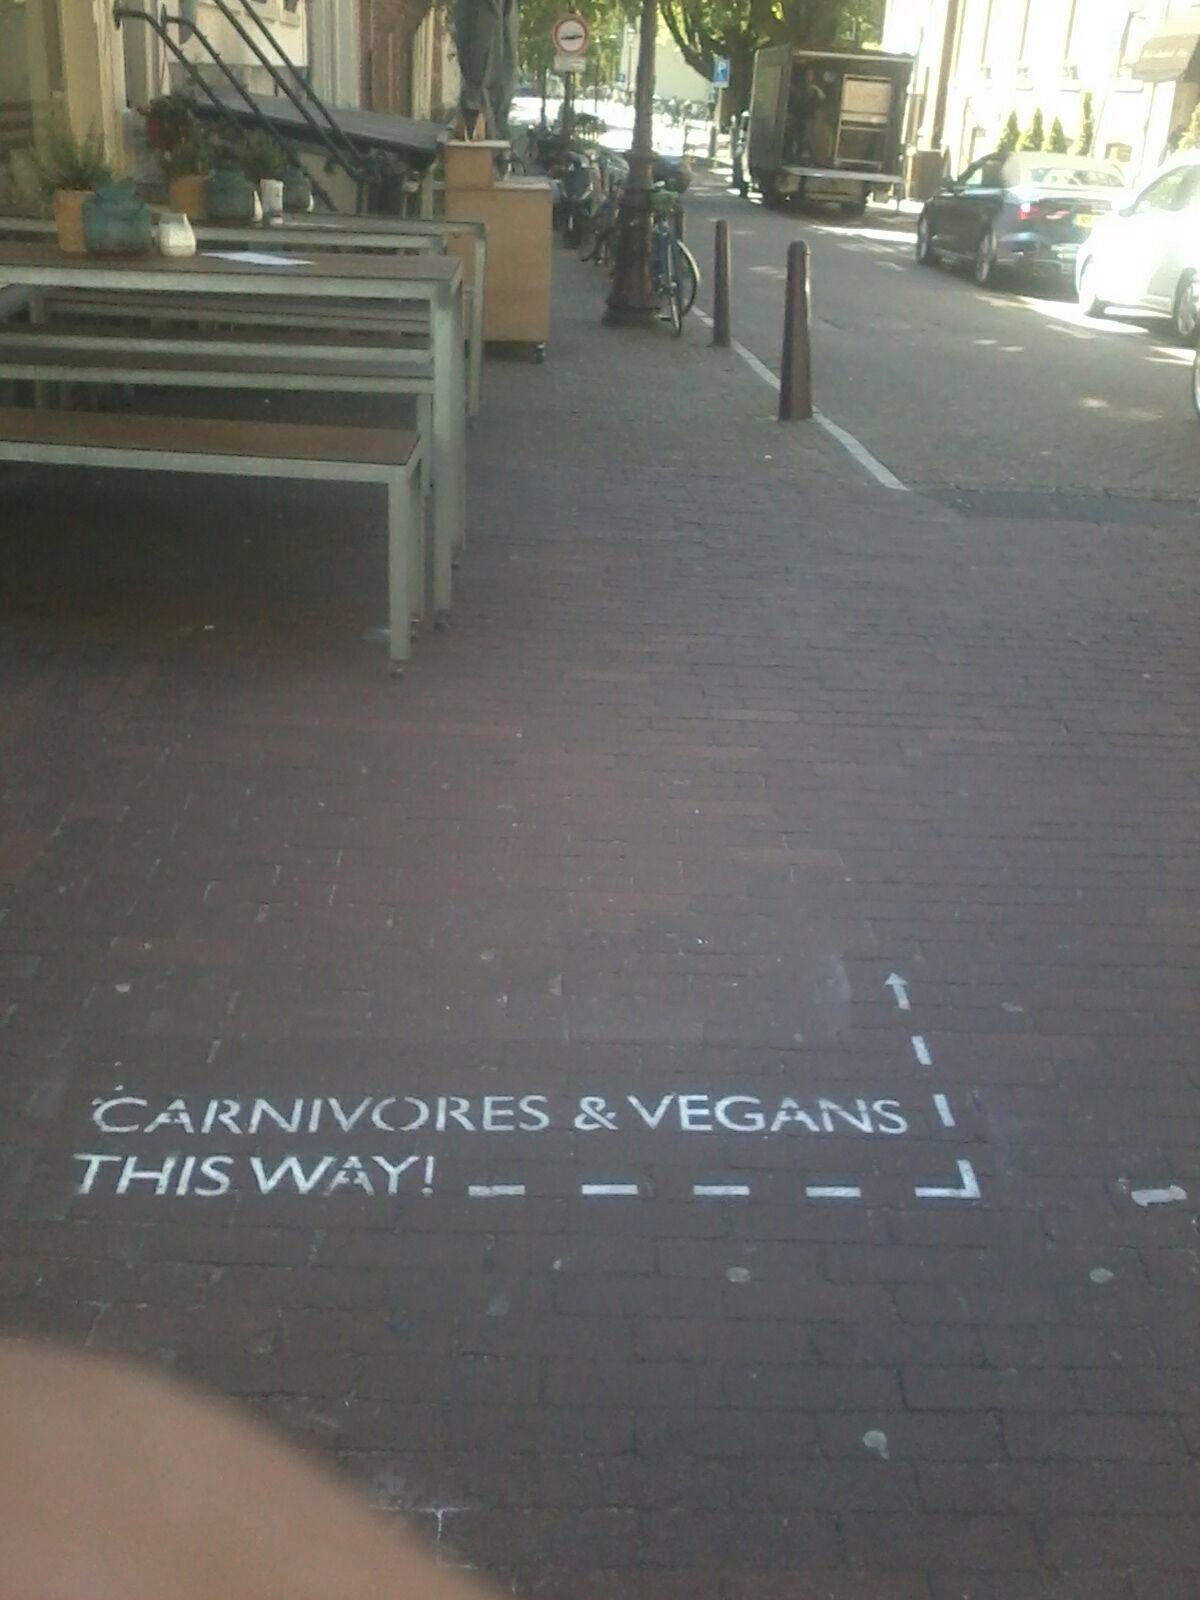 CARNIVORES & VEGANS
THIS WAY!